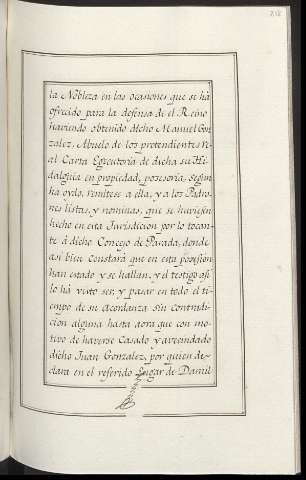 la Nobleza en las ocasiones que se hà
ofrecido para la defensa de el Reino
haviendo obtenido dicho Manuel Gon
zalez, Abuelo de los pretendientes Re
al Carta Egecutoria de dicha su Hi
dalguia en propiedad, y posesoria, segun
ha oydo, remitese a ella, y a los Padro
nes listas, y nominas, que se huviesen
hecho en esta Jurisdicion por lo tocan
te â dicho Concejo de Parada, donde
asi bien Constará que en esta posesion
han estado y se hallan, y el testigo asi
lo há visto ser, y pasar en todo el ti
empo de su acordanza sin contradi
cion alguna hasta aora que con mo
tivo de haverse Casado y avecindado
dicho Juan Gonzalez, por quien de
clara en el referido Lugar de